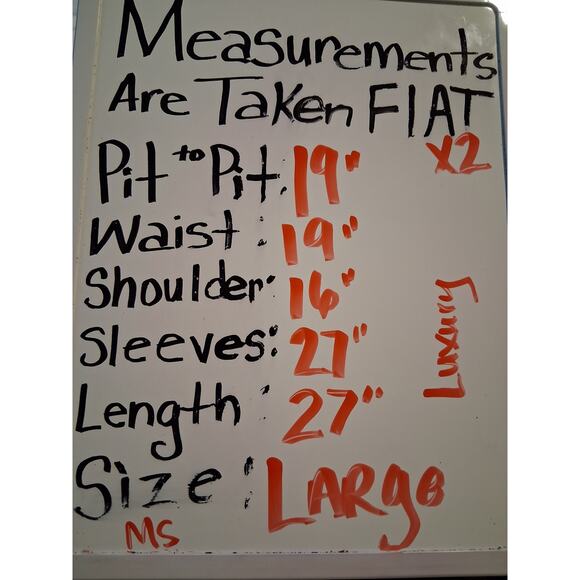 Measurements
Are Taken FlAT
X2
Pit to Pit: 19"
Waist: 19"
Shoulder: 16"
Sleeves: 27"
Luxury
Length: 27"
Size: LARge
MS